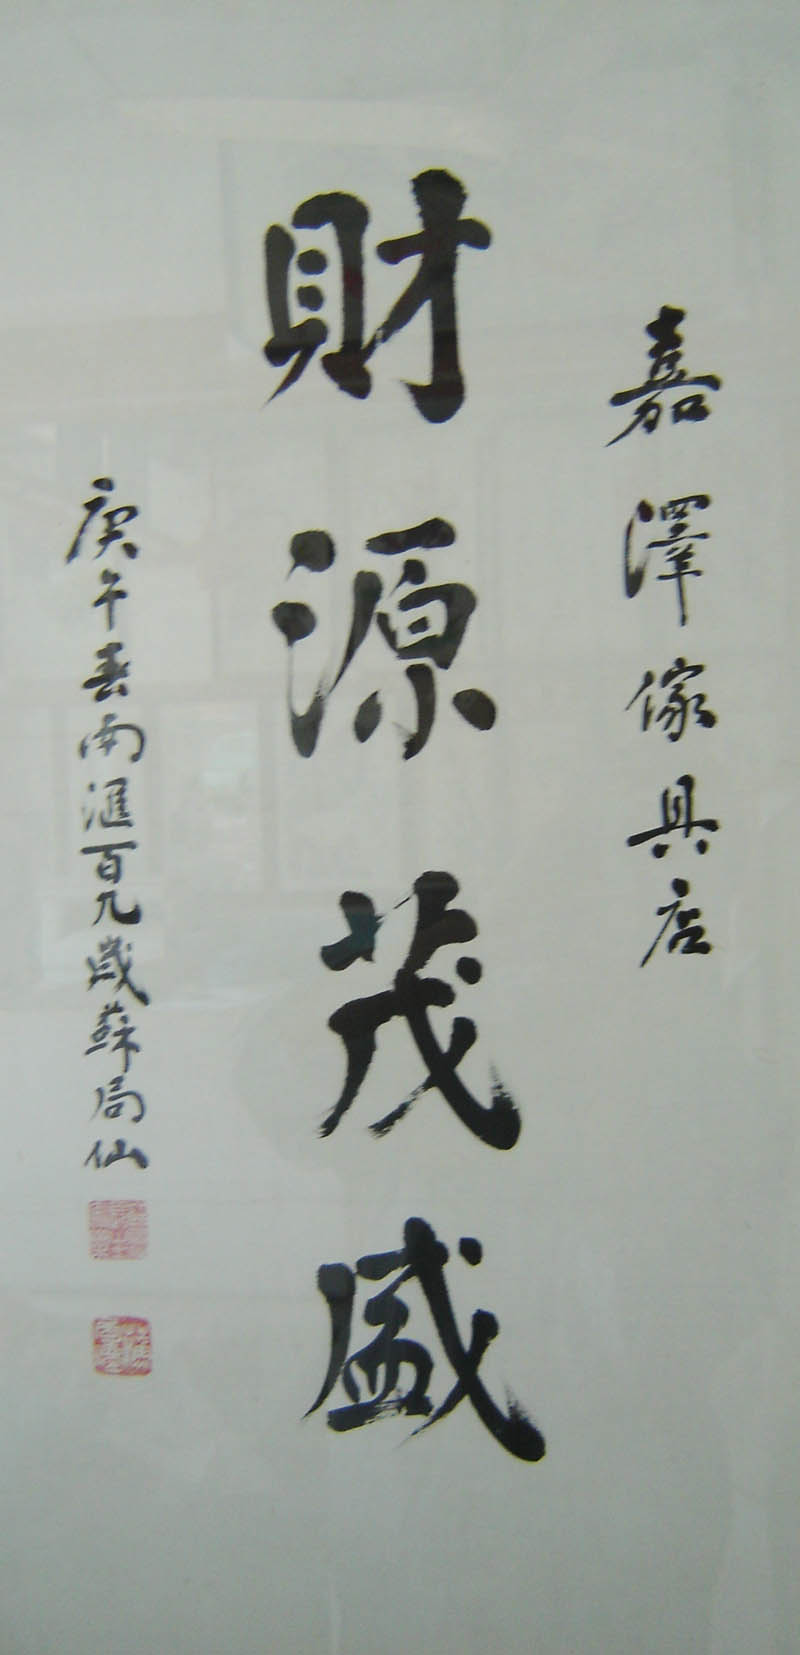 嘉澤傢具店
財源茂盛
庚午春南滙百九歲蘇局仙